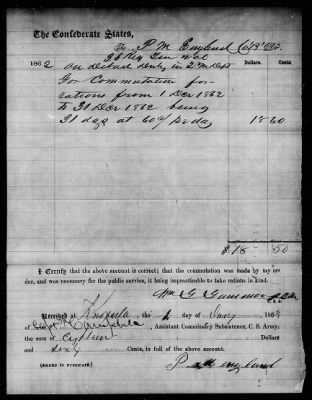 The Confederate States,
To P M England
1862 Dollars. Cents
on detach duty in
For Commutation for
rations from 1 Dec 1862
to 31 Dec 1862 being
31 days at 60c per day 18 60
$18 60
I Certify that the above account is correct; that the commutation was made by my or-
der, and was necessary for the public service, it being impracticable to take rations in kind.
Wm G
Received at the of Jany 186
of Capt , Assistant Commissary Subsistence, C. S. Army,
the sum of Eighteen
and sixty Cents, in full of the above account.
P M England
(SIGNED IN DUPLICATE.)